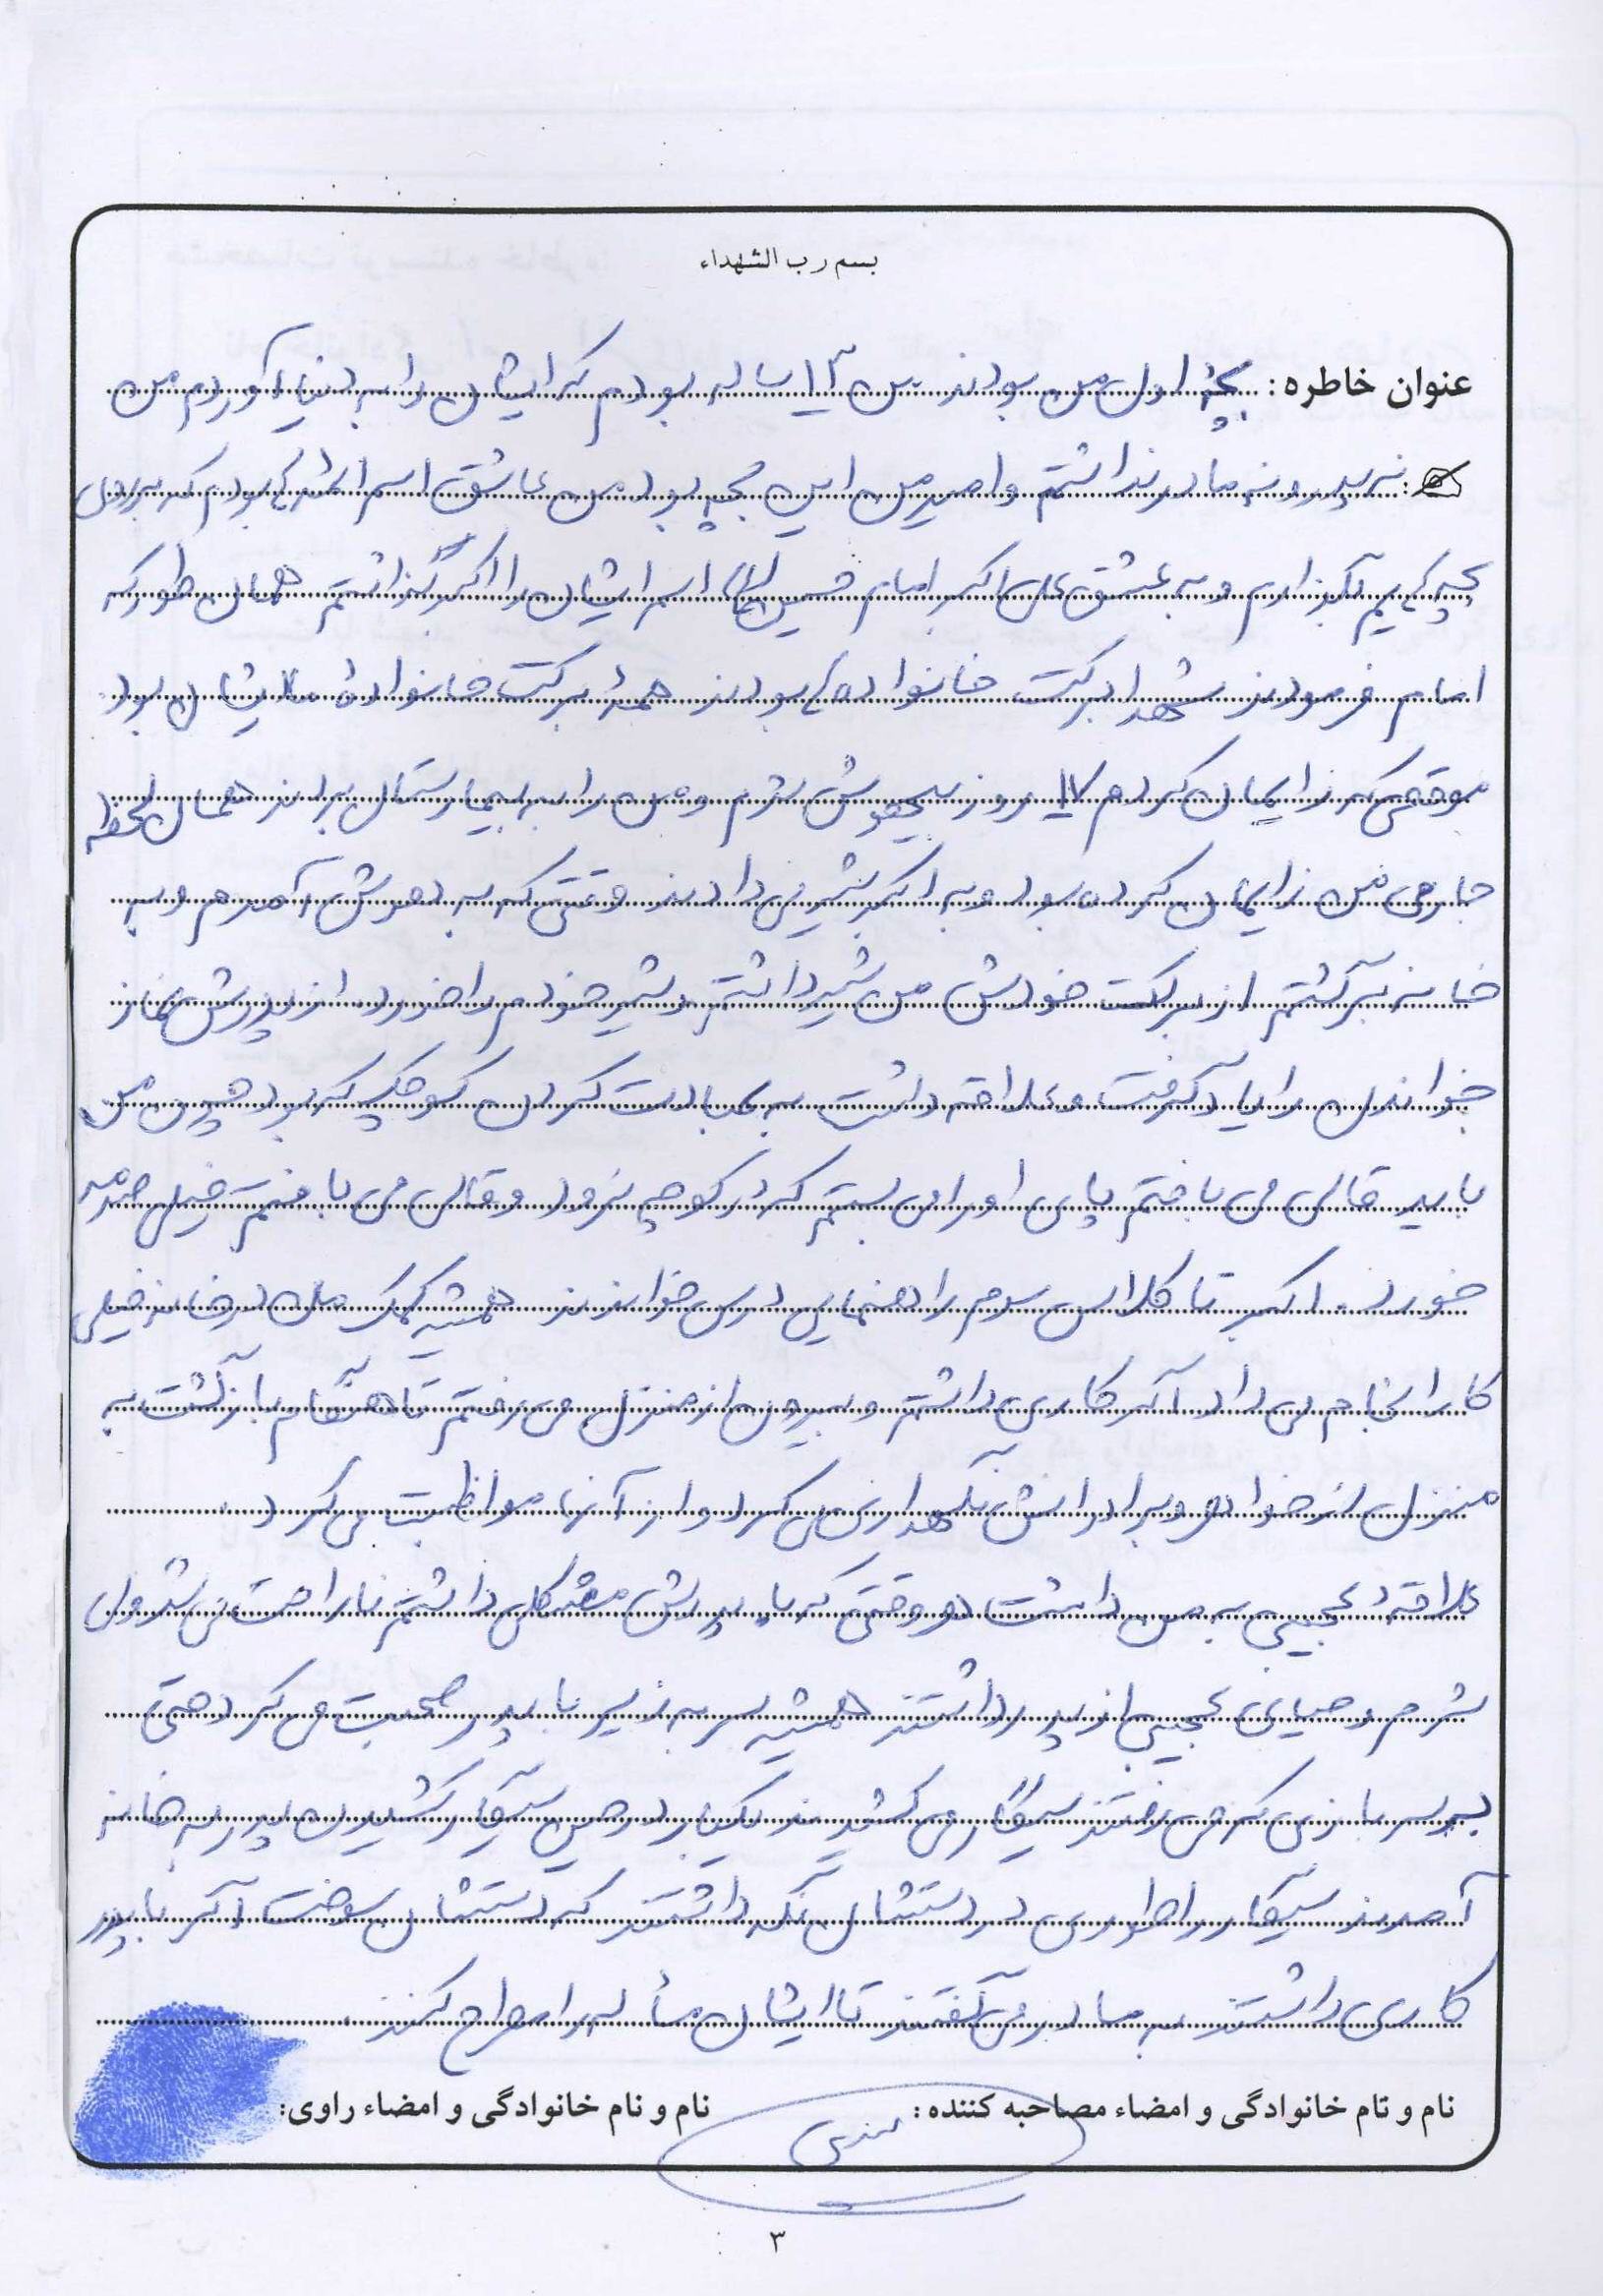 بسم رب الشهداء
عنوان خاطره: بچهٔ اول من بودند من ۱۲ ساله بودم که ایشان را به دنیا آوردم من
نه پدر و نه مادر نداشتم و امید من این بچه بود من عاشق اسم ائمه بودم که بر روی
بچه هایم بگذارم و به عشق علی اکبر امام حسین اسم ایشان را اکبر گذاشتم همان طور که
امام فرمودند شهدا برکت خانواده بودند همهٔ برکت خانوادهٔ ما ایشان بود.
موقعی که زایمان کردم ۱۷ روز بیهوش شدم و من را به بیمارستان بردند همان لحظه
جاری من زایمان کرده بود و به اکبر شیر می دادند وقتی که به هوش آمدم و به
خانه برگشتم از برکت خودش من شیر داشتم و شیر خودم را خورد. از پدرش نماز
خواندن را یاد گرفت و علاقه داشت به عبادت کردن کوچک که بود چون من
باید قالی می بافتم پای او را می بستم که در کوچه نرود و قالی می بافتم خیلی صدمه
خورد. اکبر تا کلاس سوم راهنمایی درس خواندند همیشه کمک من در خانه خیلی
کار انجام می داد. اگر کاری داشتم و بیرون از منزل می رفتم تا هنگام بازگشت به
منزل از خواهر و برادرانش نگهداری می کرد و از آنها مواظبت می کرد.
علاقهٔ عجیبی به من داشت هر وقتی که با پدرش مشکلی داشتم ناراحت می شد ولی
شرم و حیای عجیبی از پدر داشتند همیشه سر به زیر با پدر صحبت می کرد حتی
به سربازی که می رفتند سیگار می کشیدند یکبار در حین سیگار کشیدن پدر به خانه
آمدند سیگار را طوری در دستشان نگه داشتند که دستشان سوخت اگر با پدر
کاری داشتند به مادر می گفتند تا ایشان مسأله را مطرح کنند.
نام و نام خانوادگی و امضاء مصاحبه کننده: نام و نام خانوادگی و امضاء راوی:
۳